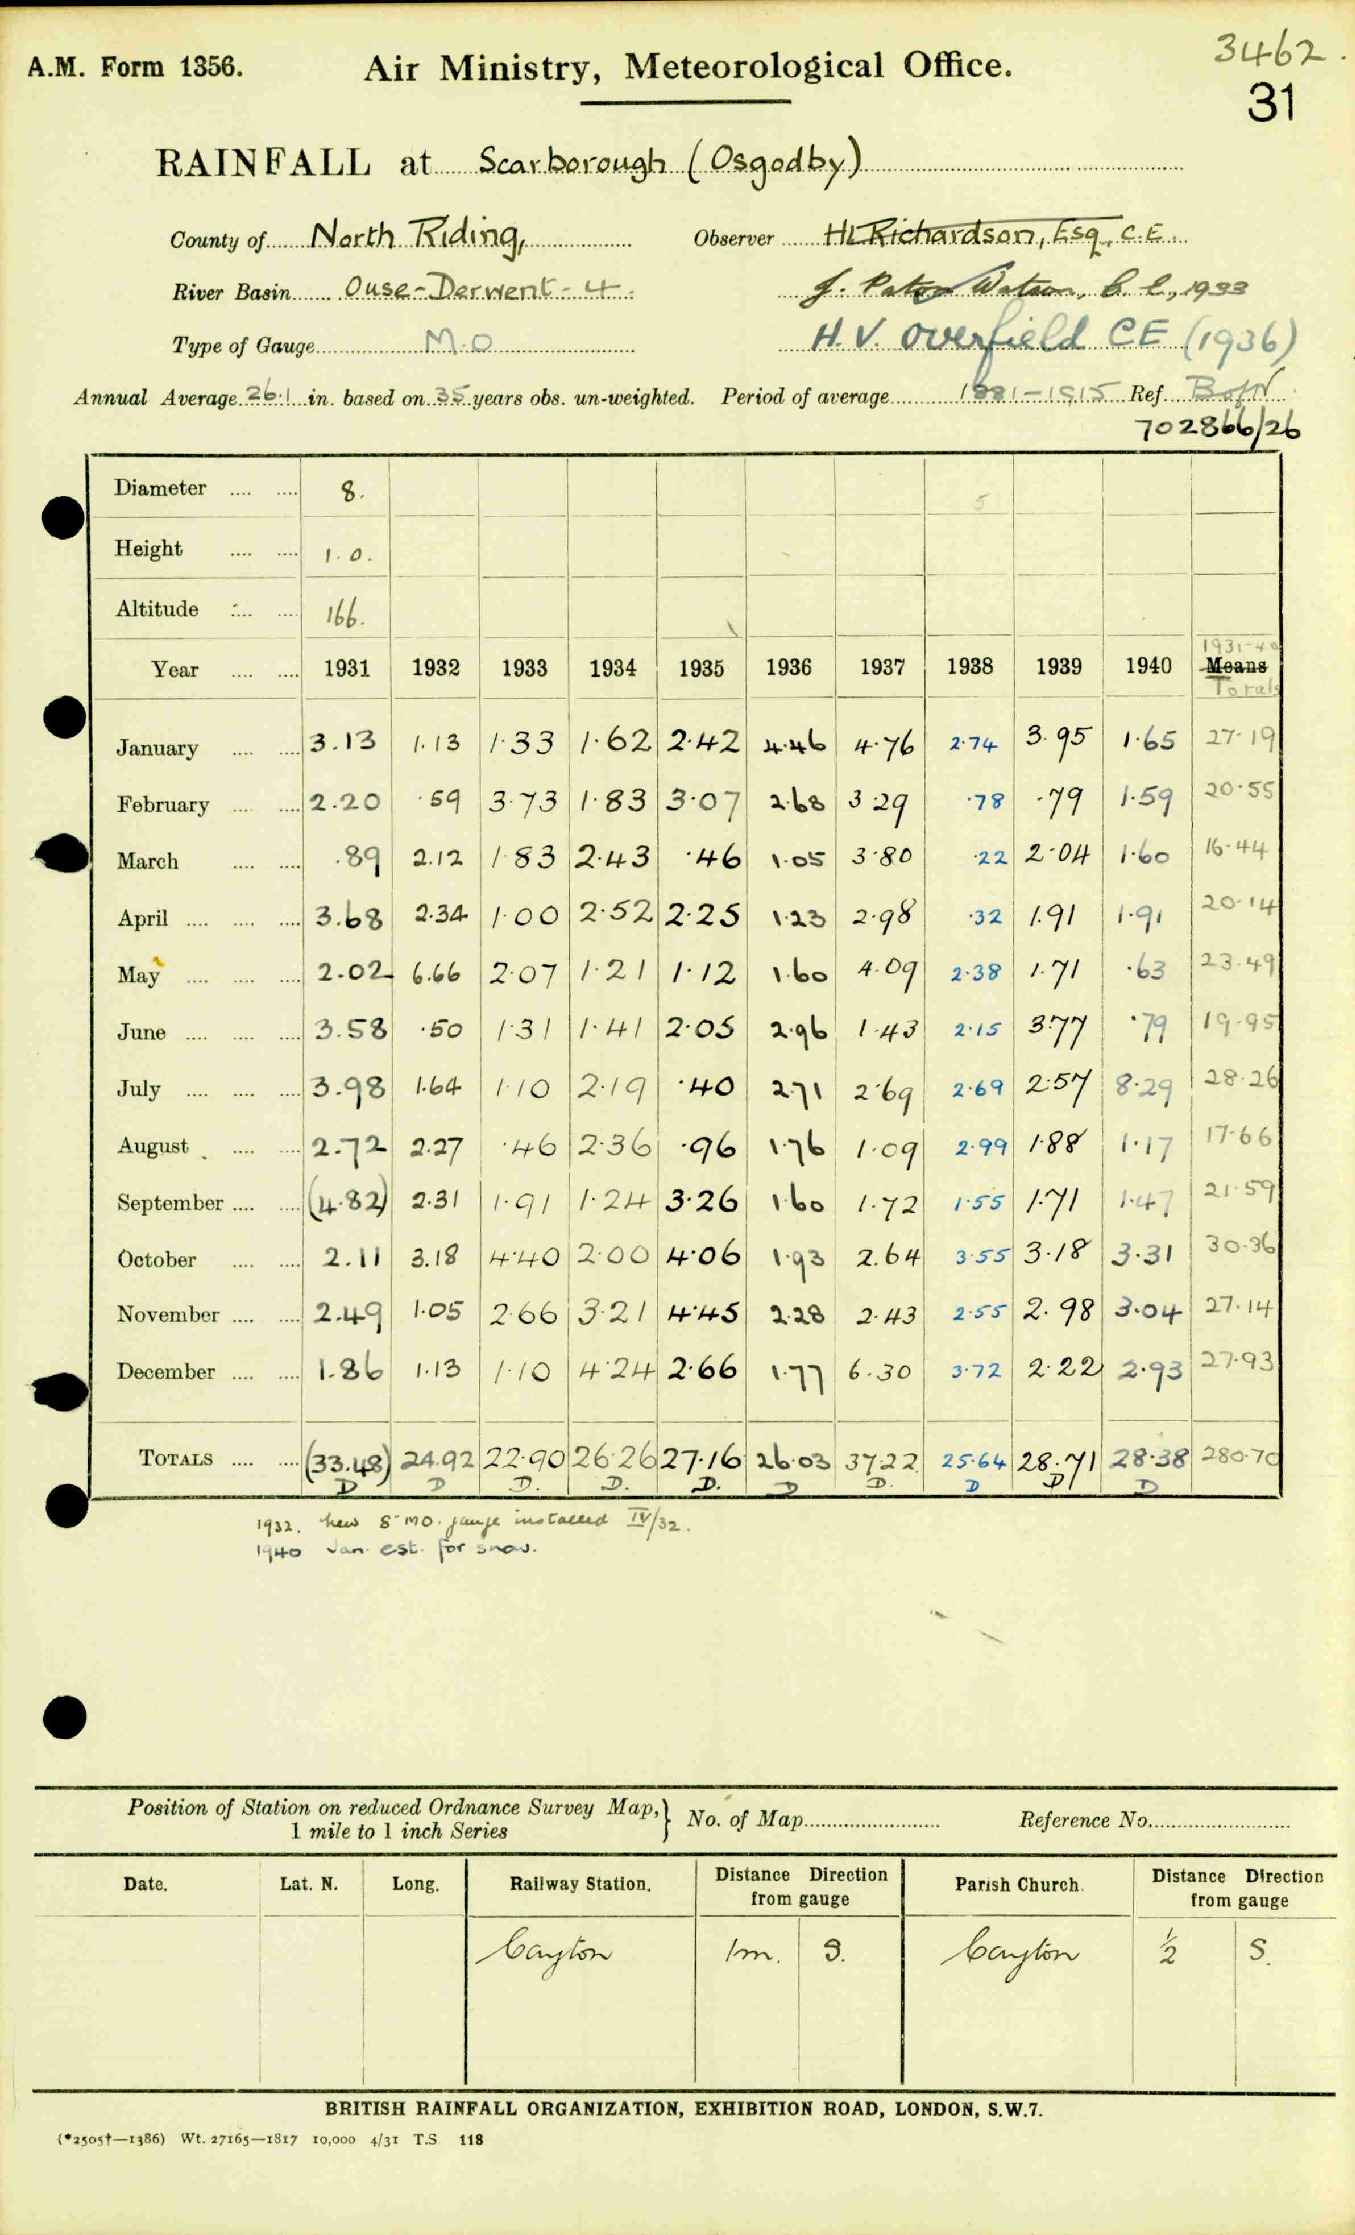 3462.
A.M. Form 1356. Air Ministry, Meteorological Office.
31
RAINFALL at Scarborough (Osgodby)
County of North Riding, Observer HL Richardson, Esq. C.E.
River Basin Ouse-Derwent-4. J. Paton Watson, C.E., 1933
Type of Gauge M.O H.V. Overfield CE (1936)
Annual Average 26.1 in. based on 35 years obs. un-weighted. Period of average 1881-1915 Ref.
702866/26
Diameter .... .... 8. 5
Height .... .... 1.0.
Altitude .... .... 166.
1931-40
Year .... .... 1931 1932 1933 1934 1935 1936 1937 1938 1939 1940 Means
Totals
January .... .... 3.13 1.13 1.33 1.62 2.42 4.46 4.76 2.74 3.95 1.65 27.19
February .... .... 2.20 .59 3.73 1.83 3.07 2.68 3.29 .78 .79 1.59 20.55
March .... .... .89 2.12 1.83 2.43 .46 1.05 3.80 .22 2.04 1.60 16.44
April .... .... .... 3.68 2.34 1.00 2.52 2.25 1.23 2.98 .32 1.91 1.91 20.14
May .... .... .... 2.02 6.66 2.07 1.21 1.12 1.60 4.09 2.38 1.71 .63 23.49
June .... .... .... 3.58 .50 1.31 1.41 2.05 2.96 1.43 2.15 3.77 .79 19.95
July .... .... .... 3.98 1.64 1.10 2.19 .40 2.71 2.69 2.69 2.57 8.29 28.26
August .... .... 2.72 2.27 .46 2.36 .96 1.76 1.09 2.99 1.88 1.17 17.66
September .... .... (4.82) 2.31 1.91 1.24 3.26 1.60 1.72 1.55 1.71 1.47 21.59
October .... .... 2.11 3.18 4.40 2.00 4.06 1.93 2.64 3.55 3.18 3.31 30.36
November .... .... 2.49 1.05 2.66 3.21 4.45 2.28 2.43 2.55 2.98 3.04 27.14
December .... .... 1.86 1.13 1.10 4.24 2.66 1.77 6.30 3.72 2.22 2.93 27.93
TOTALS .... .... (33.48) 24.92 22.90 26.26 27.16 26.03 37.22 25.64 28.71 28.38 280.70
D D D. D. D. D D. D D D
1932. New 8" MO. gauge installed IV/32.
1940 Jan. est. for snow.
Position of Station on reduced Ordnance Survey Map,} No. of Map Reference No.
1 mile to 1 inch Series
Date. Lat. N. Long. Railway Station. Distance Direction from gauge Parish Church. Distance Direction from gauge
Cayton 1m. S. Cayton ½ S.
BRITISH RAINFALL ORGANIZATION, EXHIBITION ROAD, LONDON, S.W.7.
(*2505†—1386) Wt. 27165—1817 10,000 4/31 T.S. 118